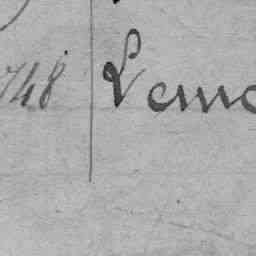 748 Lemo